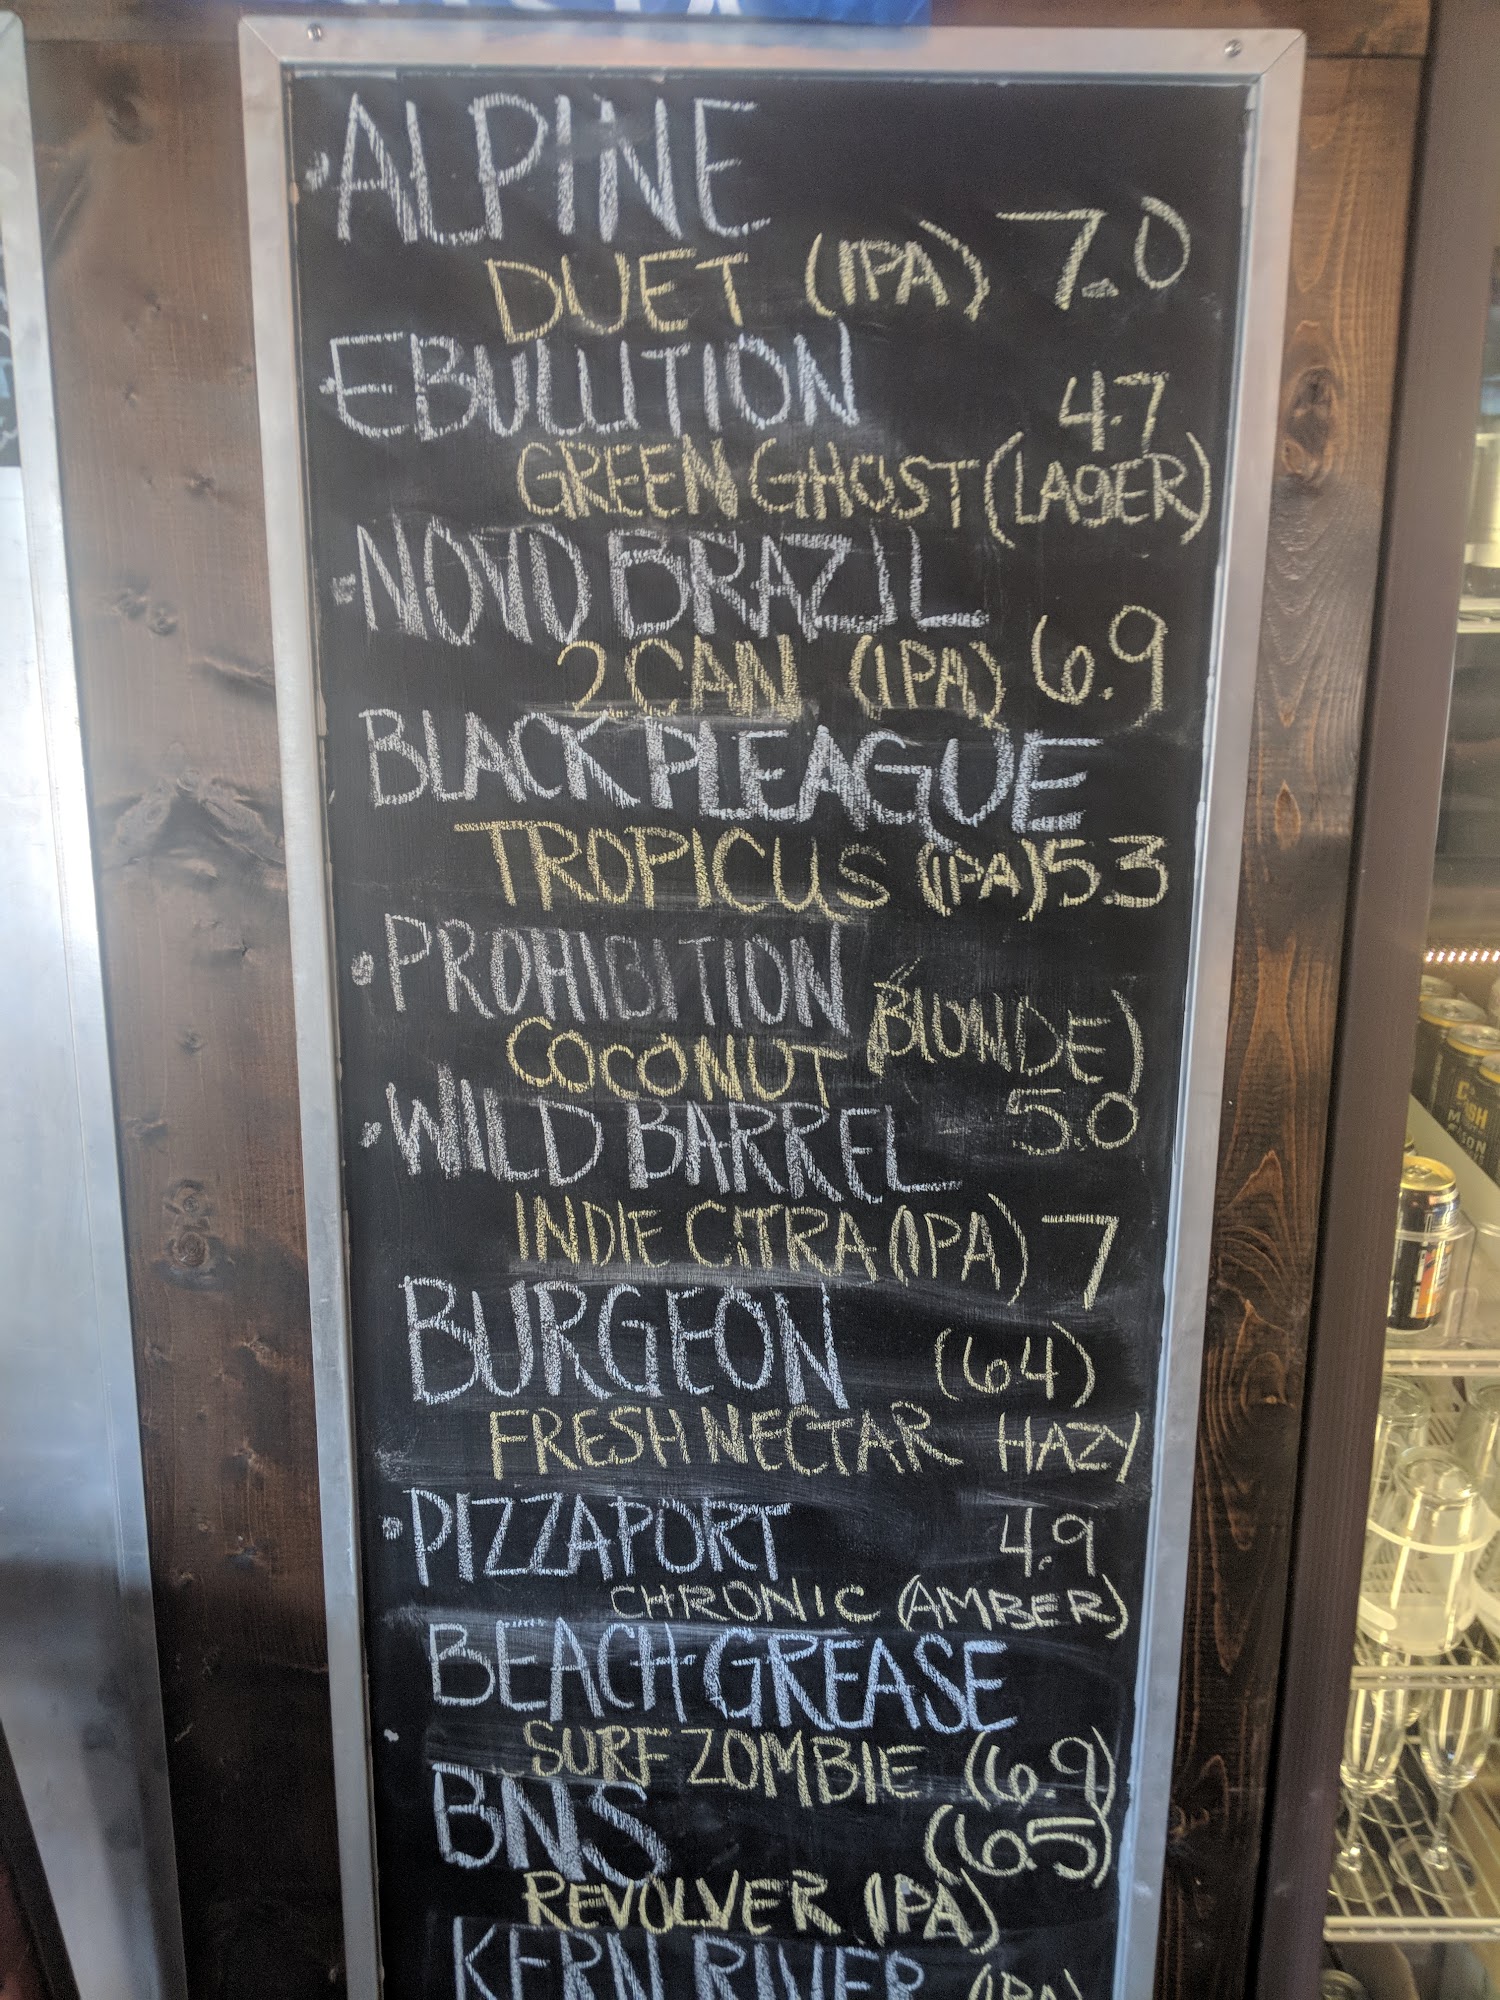 ALPINE
DUET (IPA) 7.0
EBULLITION
4.7
GREEN GHOST (LAGER)
NOVO BRAZIL
2CAN (IPA) 6.9
BLACK PLEAGUE
TROPICUS (IPA) 5.3
PROHIBITION
COCONUT (BLONDE)
5.0
WILD BARREL
INDIE CITRA (IPA) 7
BURGEON (64)
FRESH NECTAR HAZY
PIZZAPORT 4.9
CHRONIC (AMBER)
BEACH GREASE
SURF ZOMBIE (6.9)
BNS (65)
REVOLVER (IPA)
KERN RIVER (IPA)